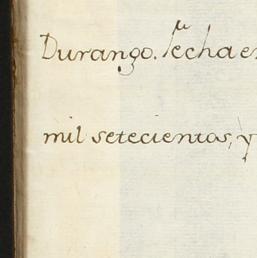 Durango. fecha en
mil setecientos, y